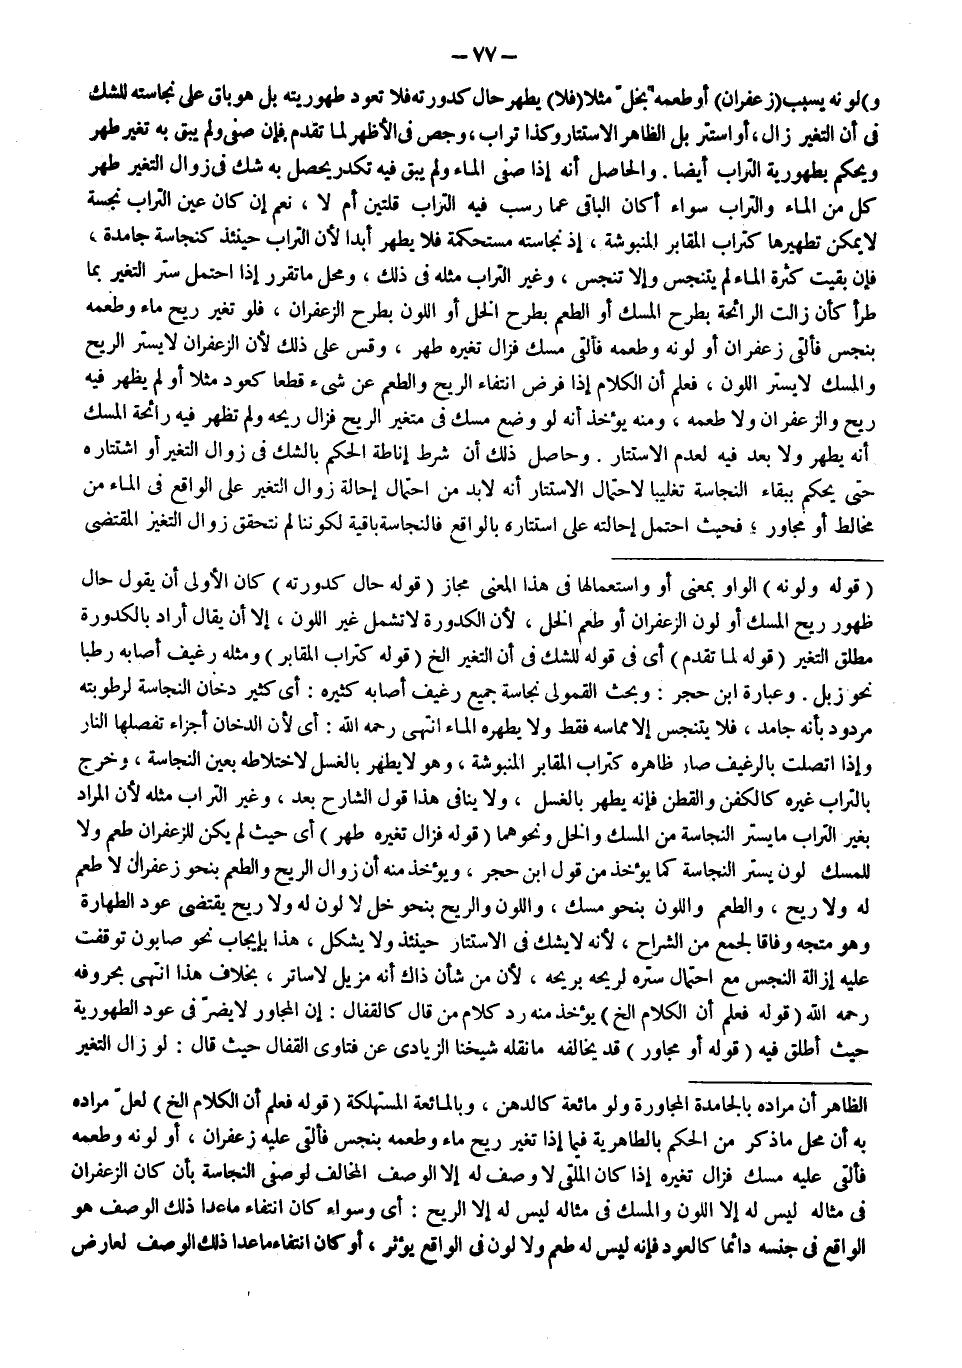 — ٧٧ —
و) لونه يسبب (زعفران) أو طعمه بخل مثلا (فلا) يطهر حال كدورته فلا تعود طهوريته بل هو باق على نجاسته للشك
فى أن التغير زال، أو استتر بل الظاهر الاستتار وكذا تراب، وجص فى الأظهر لما تقدم فإن صفى ولم يبق به تغير طهر
ويحكم بطهورية التراب أيضا. والحاصل أنه إذا صفى الماء ولم يبق فيه تكدر يحصل به شك فى زوال التغير طهر
كل من الماء والتراب سواء أكان الباقى عما رسب فيه التراب قلتين أم لا، نعم إن كان عين التراب نجسة
لايمكن تطهيرها كتراب المقابر المنبوشة، إذ نجاسته مستحكمة فلا يطهر أبدا لأن التراب حينئذ كنجاسة جامدة،
فإن بقيت كثرة الماء لم يتنجس وإلا تنجس، وغير التراب مثله فى ذلك، ومحل ماتقرر إذا احتمل ستر التغير بما
طرأ كأن زالت الرائحة بطرح المسك أو الطعم بطرح الخل أو اللون بطرح الزعفران، فلو تغير ريح ماء وطعمه
بنجس فألقى زعفران أو لونه وطعمه فألقى مسك فزال تغيره طهر، وقس على ذلك لأن الزعفران لايستر الريح
والمسك لايستر اللون، فعلم أن الكلام إذا فرض انتفاء الريح والطعم عن شىء قطعا كعود مثلا أو لم يظهر فيه
ريح والزعفران ولا طعمه، ومنه يؤخذ أنه لو وضع مسك فى متغير الريح فزال ريحه ولم تظهر فيه رائحة المسك
أنه يطهر ولا بعد فيه لعدم الاستتار. وحاصل ذلك أن شرط إناطة الحكم بالشك فى زوال التغير أو اشتتاره
حتى يحكم ببقاء النجاسة تغليبا لاحتمال الاستتار أنه لابد من احتمال إحالة زوال التغير على الواقع فى الماء من
مخالط أو مجاور؛ فحيث احتمل إحالته على استتاره بالواقع فالنجاسة باقية لكوننا لم نتحقق زوال التغيز المقتضى
(قوله ولونه) الواو بمعنى أو واستعمالها فى هذا المعنى مجاز (قوله حال كدورته) كان الأولى أن يقول حال
ظهور ريح المسك أو لون الزعفران أو طعم الخل، لأن الكدورة لاتشمل غير اللون، إلا أن يقال أراد بالكدورة
مطلق التغير (قوله لما تقدم) أى فى قوله للشك فى أن التغير الخ (قوله كتراب المقابر) ومثله رغيف أصابه رطبا
نحو زبل. وعبارة ابن حجر: وبحث القمولى نجاسة جميع رغيف أصابه كثيره: أى كثير دخان النجاسة لرطوبته
مردود بأنه جامد، فلا يتنجس إلا مماسه فقط ولا يطهره الماء انتهى رحمه الله: أى لأن الدخان أجزاء تفصلها النار
وإذا اتصلت بالرغيف صار ظاهره كتراب المقابر المنبوشة، وهو لايطهر بالغسل لاختلاطه بعين النجاسة، وخرج
بالتراب غيره كالكفن والقطن فإنه يطهر بالغسل، ولا ينافى هذا قول الشارح بعد، وغير التراب مثله لأن المراد
بغير التراب مايستر النجاسة من المسك والخل ونحوهما (قوله فزال تغيره طهر) أى حيث لم يكن للزعفران طعم ولا
للمسك لون يستر النجاسة كما يؤخذ من قول ابن حجر، ويؤخذ منه أن زوال الريح والطعم بنحو زعفران لا طعم
له ولا ريح، والطعم واللون بنحو مسك، واللون والريح بنحو خل لا لون له ولا ريح يقتضى عود الطهارة
وهو متجه وفاقا لجمع من الشراح، لأنه لايشك فى الاستتار حينئذ ولا يشكل، هذا بإيجاب نحو صابون توقفت
عليه إزالة النجس مع احتمال ستره لريحه بريحه، لأن من شأن ذاك أنه مزيل لاساتر، بخلاف هذا انتهى بحروفه
رحمه الله (قوله فعلم أن الكلام الخ) يؤخذ منه رد كلام من قال كالقفال: إن المجاور لايضرّ فى عود الطهورية
حيث أطلق فيه (قوله أو مجاور) قد يخالفه مانقله شيخنا الزيادى عن فتاوى القفال حيث قال: لو زال التغير
الظاهر أن مراده بالجامدة المجاورة ولو مائعة كالدهن، وبالمائعة المستهلكة (قوله فعلم أن الكلام الخ) لعلّ مراده
به أن محل ماذكر من الحكم بالطاهرية فيما إذا تغير ريح ماء وطعمه بنجس فألقى عليه زعفران، أو لونه وطعمه
فألقى عليه مسك فزال تغيره إذا كان الملقى لا وصف له إلا الوصف المخالف لوصفى النجاسة بأن كان الزعفران
فى مثاله ليس له إلا اللون والمسك فى مثاله ليس له إلا الريح: أى وسواء كان انتفاء ماعدا ذلك الوصف هو
الواقع فى جنسه دائما كالعود فإنه ليس له طعم ولا لون فى الواقع يؤثر، أو كان انتفاء ماعدا ذلك الوصف لعارض